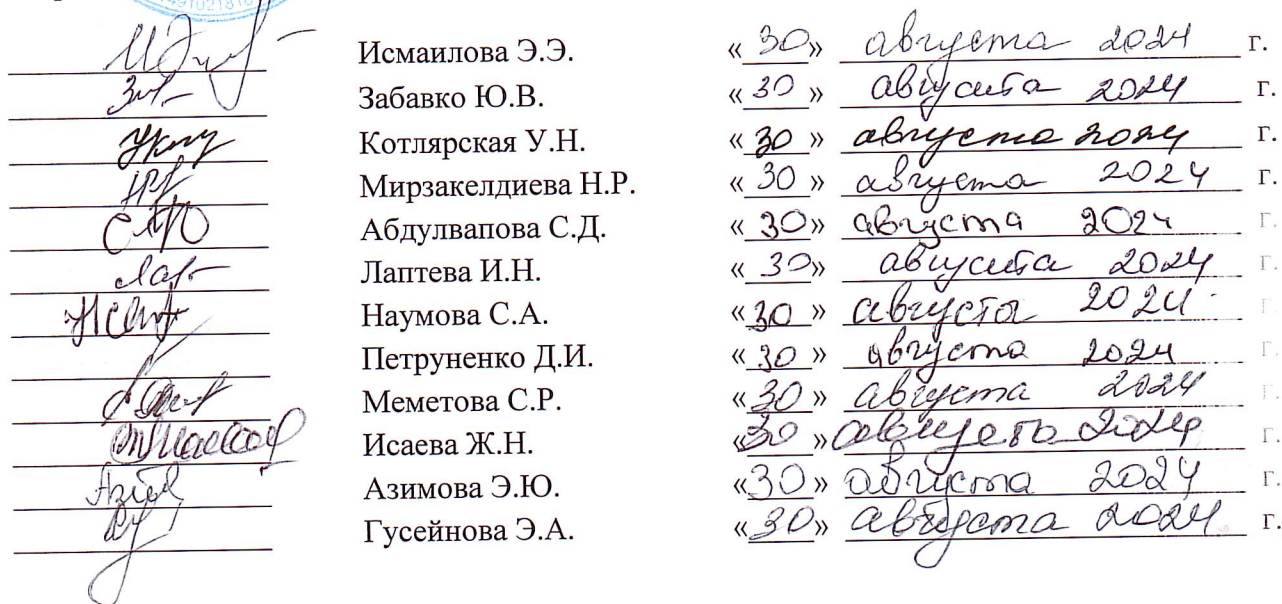 Исмаилова Э.Э. «30» августа 2024 г.
Забавко Ю.В. «30» августа 2024 г.
Котлярская У.Н. «30» августа 2024 г.
Мирзакелдиева Н.Р. «30» августа 2024 г.
Абдулвапова С.Д. «30» августа 2024 г.
Лаптева И.Н. «30» августа 2024 г.
Наумова С.А. «30» августа 2024 г.
Петруненко Д.И. «30» августа 2024 г.
Меметова С.Р. «30» августа 2024 г.
Исаева Ж.Н. «30» августа 2024 г.
Азимова Э.Ю. «30» августа 2024 г.
Гусейнова Э.А. «30» августа 2024 г.